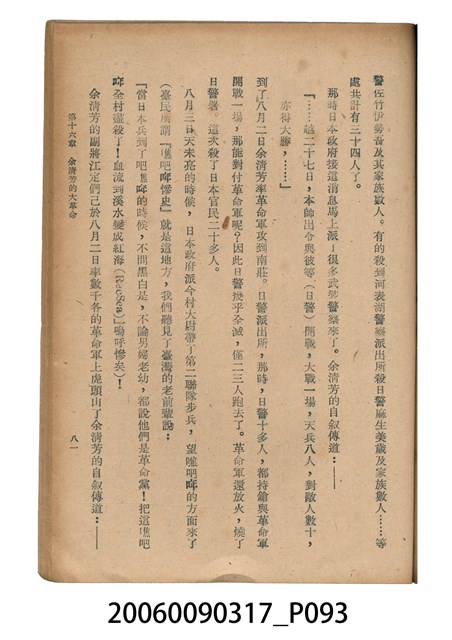 警佐竹伊勢吾及其家族數人。有的殺到河表湖警察派出所殺日警麻生美歲及家族數人……等
處共計有三十四人了。
那時日本政府接這消息馬上派了很多武裝警察來了。余清芳的自叙傳道：
『……越二十七日，本帥出令與彼等（日警）開戰，大戰一場，天兵八人，對敵人數十，
亦得大勝，……』
到了八月二日余清芳率革命軍攻到南莊。日警派出所，那時，日警十多人，都持鎗與革命軍
開戰一場，那能對付革命軍呢？因此日警幾乎全滅，僅二三人跑去了。革命軍還放火，燒了
日警署。這次殺了日本官民二十多人。
八月三日天未亮的時候，日本政府派今村大尉帶了第二聯隊步兵，望噍吧哖的方面來了
（臺民所謂『噍吧哖慘史』就是這地方，我們聽見了臺灣的老前輩說：
『當日本兵到了吧噍哖的時候，不問黑白是，不論男婦老幼，都說他們是革命黨！把這噍吧
哖全村盡殺了！血流到溪水變成紅海（RedSea）』嗚呼慘矣）！
余清芳的副將江定們己於八月二日率數千各的革命軍上虎頭山了余清芳的自叙傳道：——
第十六章　余清芳的大革命
八一
20060090317_P093